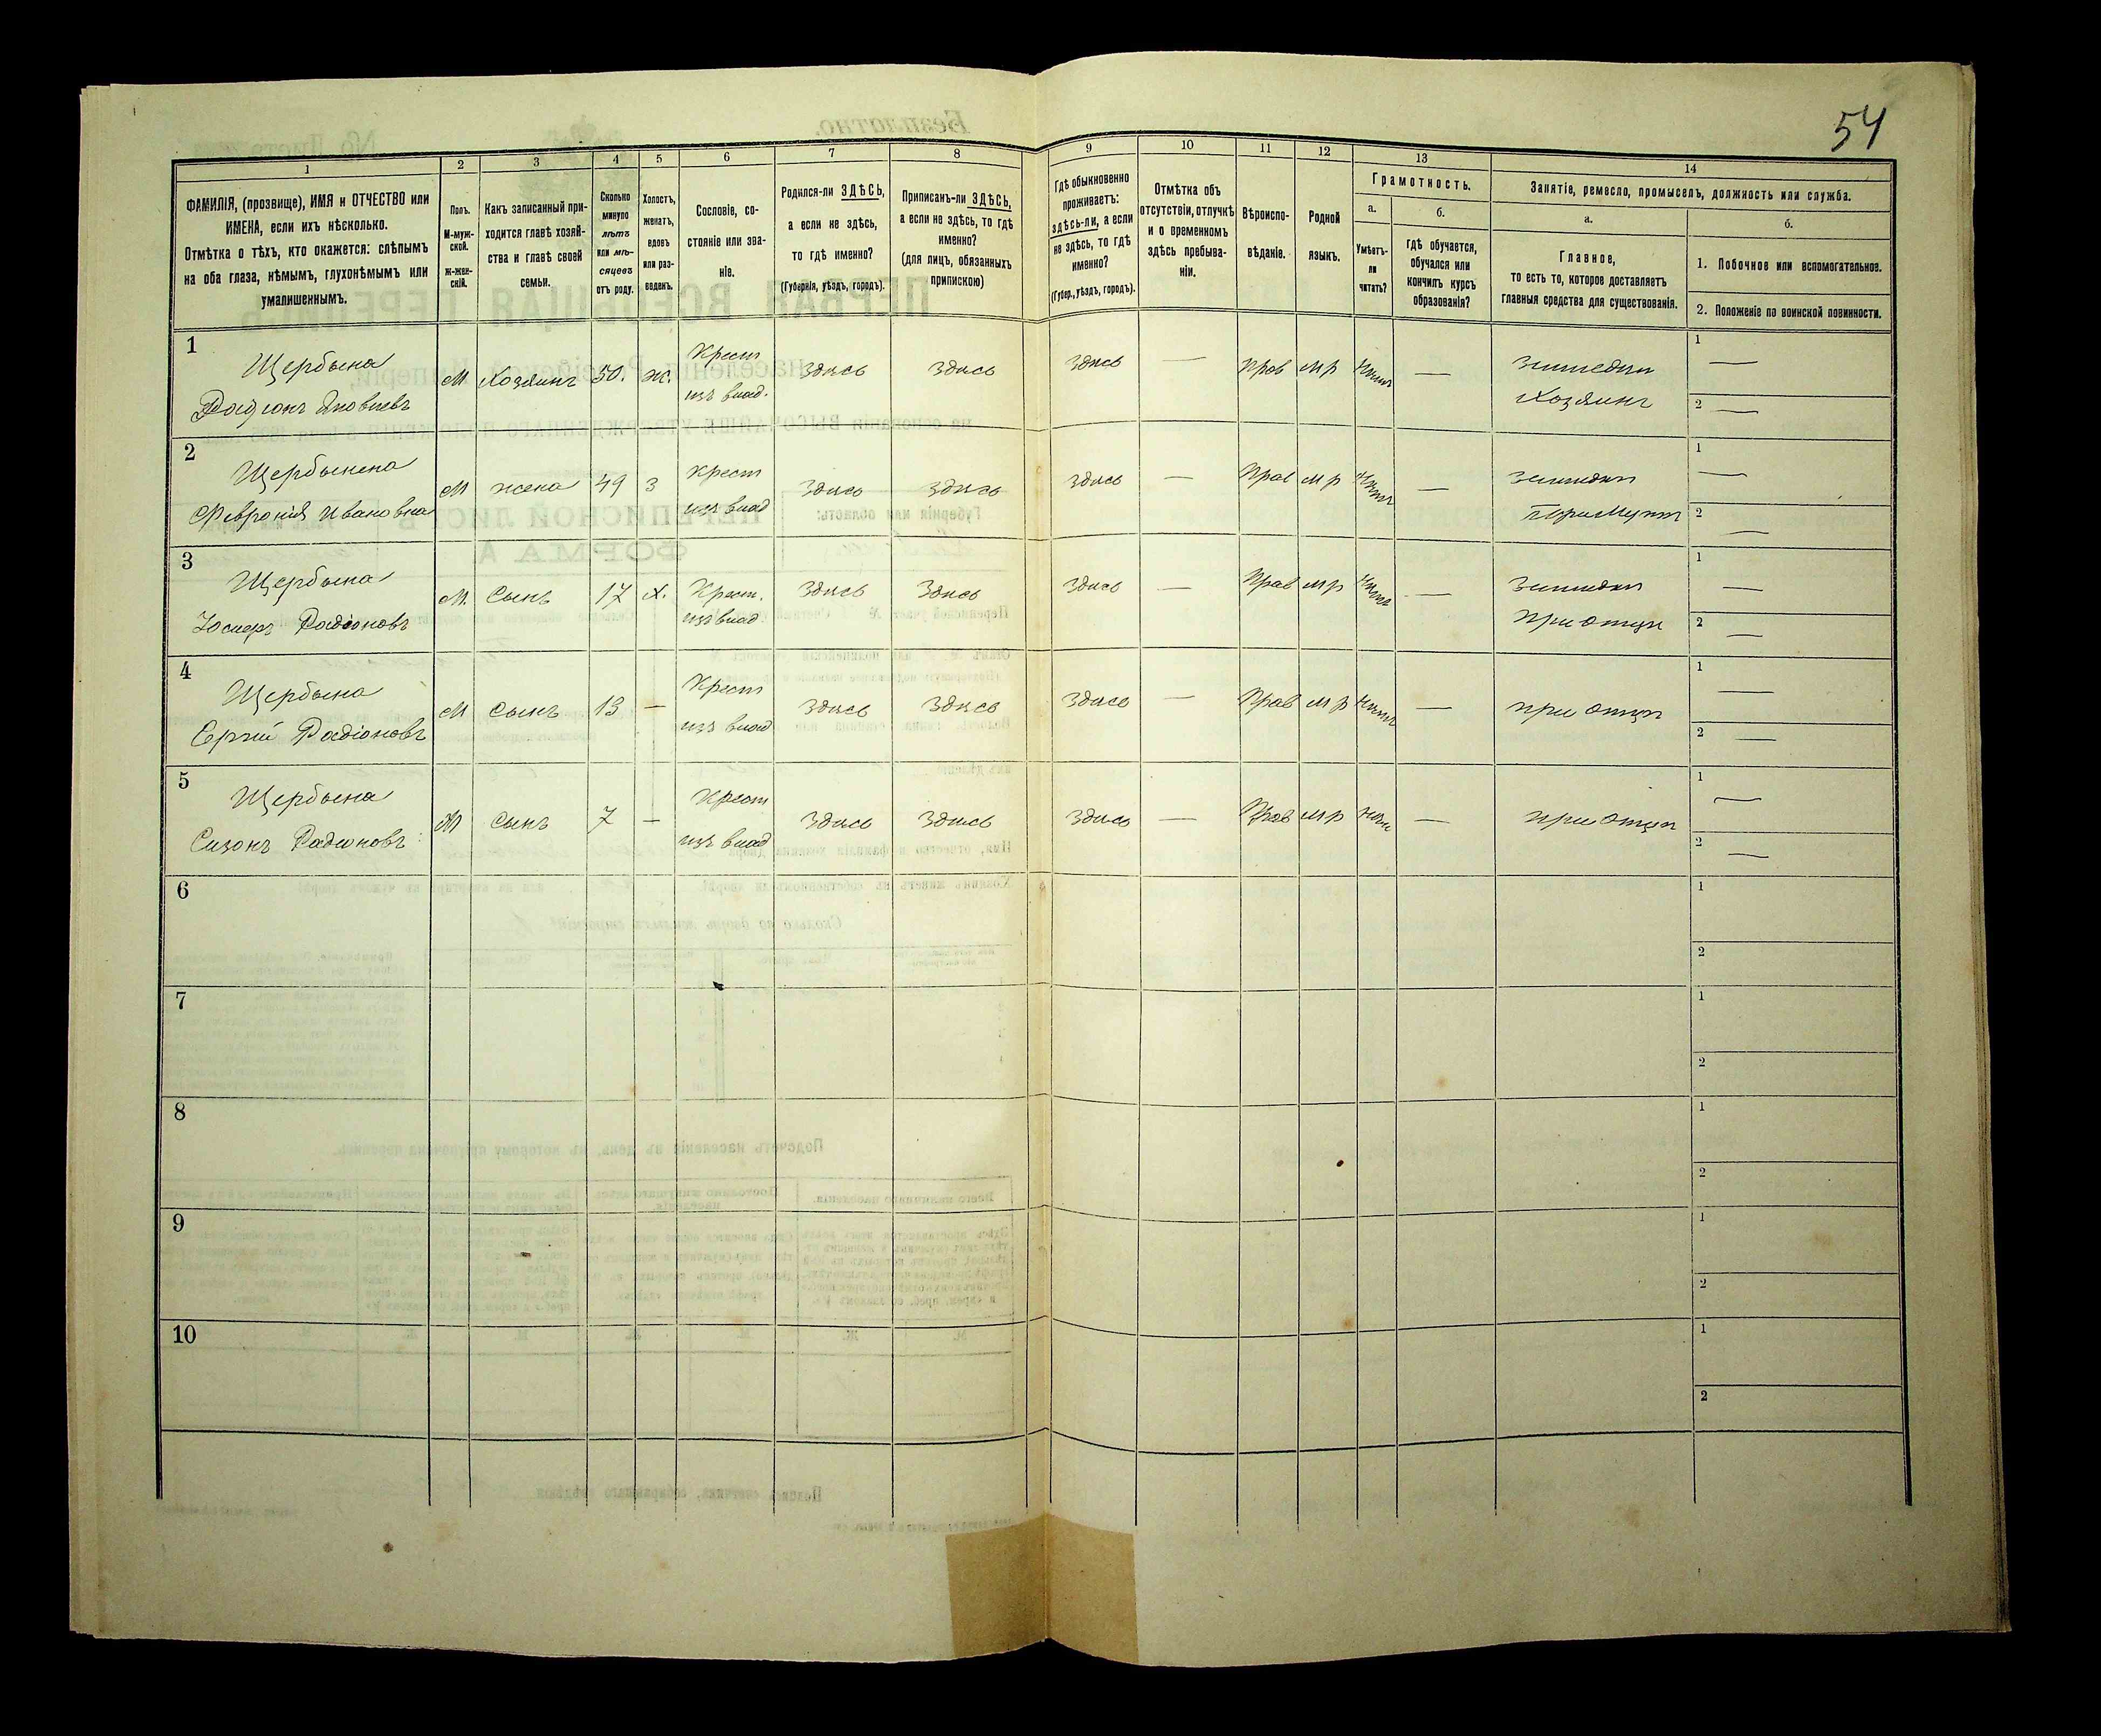 54
1
2
3
4
5
6
7
8
9
10
11
12
13
14
ФАМИЛІЯ, (прозвище), ИМЯ и ОТЧЕСТВО или
ИМЕНА, если ихъ нѣсколько.
Отмѣтка о тѣхъ, кто окажется: слѣпымъ
на оба глаза, нѣмымъ, глухонѣмымъ или
умалишеннымъ.
Полъ.
М-муж-
ской.
ж-жен-
скій.
Какъ записанный при-
ходится главѣ хозяй-
ства и главѣ своей
семьи.
Сколько
минуло
лѣтъ
или мѣ-
сяцевъ
отъ роду.
Холостъ,
женатъ,
вдовъ
или раз-
веденъ.
Сословіе, со-
стояніе или зва-
ніе.
Родился-ли ЗДѢСЬ,
а если не здѣсь,
то гдѣ именно?
(Губернія, уѣздъ, городъ).
Приписанъ-ли ЗДѢСЬ,
а если не здѣсь, то гдѣ
именно?
(для лицъ, обязанныхъ
припискою)
Гдѣ обыкновенно
проживаетъ:
здѣсь-ли, а если
не здѣсь, то гдѣ
именно?
(Губер., уѣздъ, городъ).
Отмѣтка объ
отсутствіи, отлучкѣ
и о временномъ
здѣсь пребыва-
ніи.
Вѣроиспо-
вѣданіе.
Родной
языкъ.
Грамотность.
а.
Умѣетъ-
ли
читать?
б.
гдѣ обучается,
обучался или
кончилъ курсъ
образованія?
Занятіе, ремесло, промыселъ, должность или служба.
а.
Главное,
то есть то, которое доставляетъ
главныя средства для существованія.
б.
1. Побочное или вспомогательное.
2. Положеніе по воинской повинности.
1
Щербына
Радіонъ Яковлевъ
М Хозяинъ 50. Ж.
Крест
изъ влад.
здѣсь здѣсь здѣсь — Прав мр Нѣтъ —
Хозяинъ
1 —
2 —
2
Феѵронія Ивановна
М жена 49 З
Крест
изъ влад
здѣсь здѣсь здѣсь — Прав мр Нѣтъ —
1 —
2 —
3
Щербына
Радіоновъ
М. Сынъ 17 Х.
Крест.
изъ влад
здѣсь здѣсь здѣсь — Прав мр Нѣтъ —
при отцѣ
1 —
2 —
4
Щербына
Радіоновъ
М Сынъ 13 —
Крест
изъ влад
здѣсь здѣсь здѣсь — Прав мр Нѣтъ —
при отцѣ
1 —
2 —
5
Щербына
Сизонъ Радионовъ
М Сынъ 7 —
Крест
изъ влад
здѣсь здѣсь здѣсь — Прав мр —
при отцѣ
1 —
2 —
6
1
2
7
1
2
8
1
2
9
1
2
10
1
2